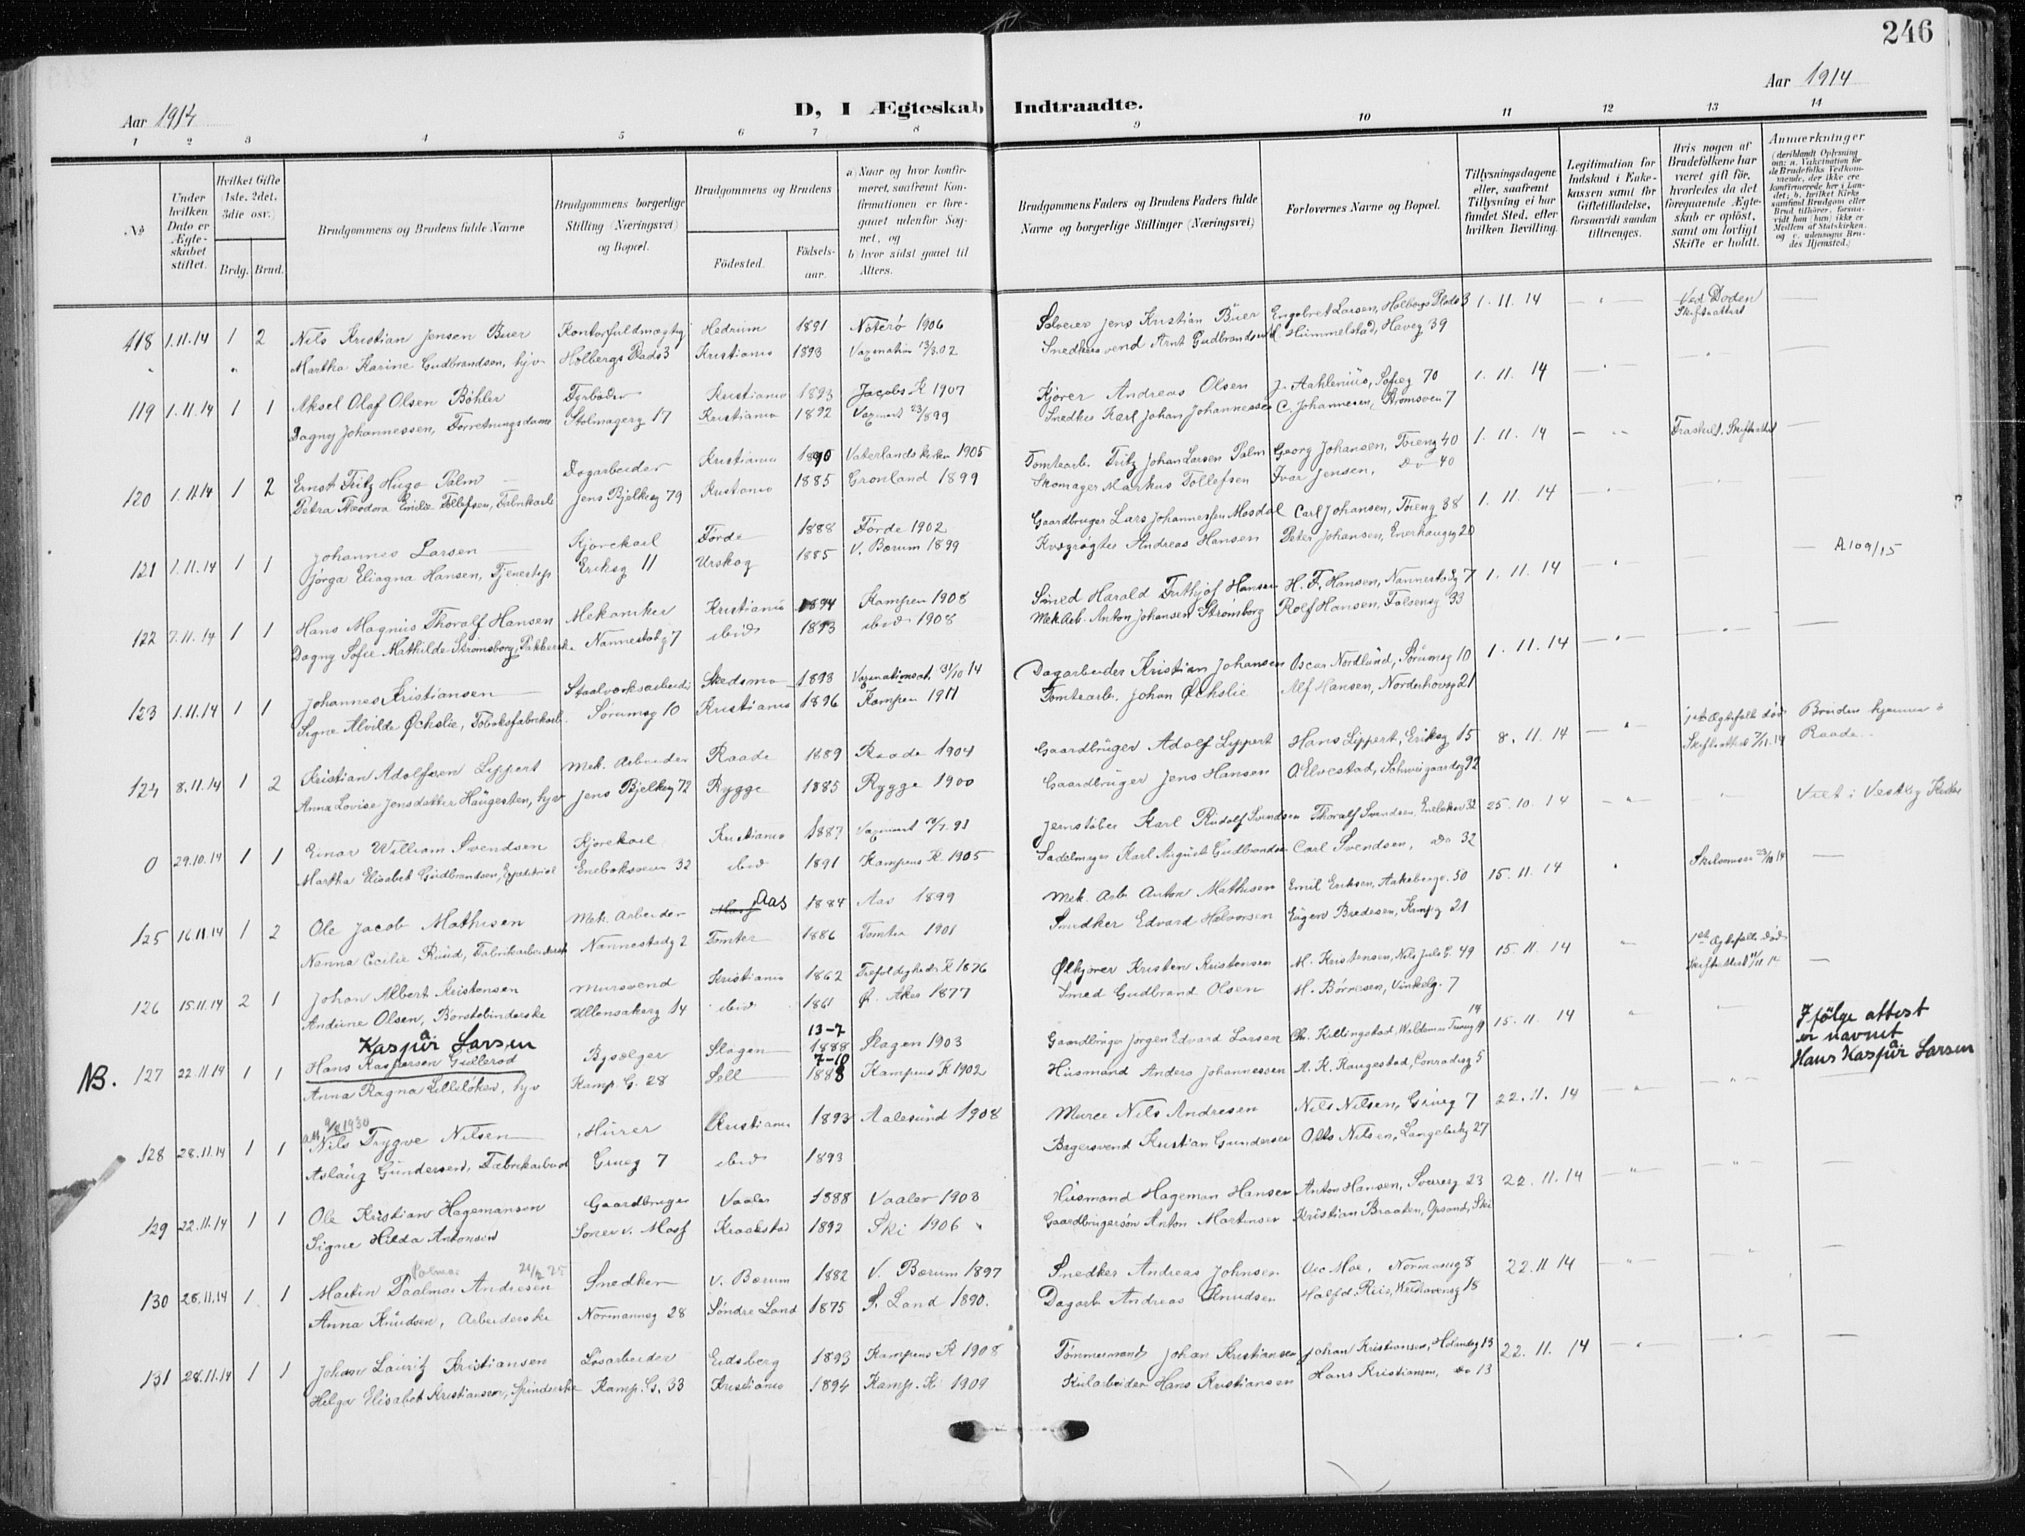 246
Aar 1914
D, I Ægteskab Indtraadte.
Aar 1914
1 2 3 4 5 6 7 8 9 10 11 12 13 14
No
Under hvilken Dato er Ægteskabet stiftet.
Hvilket Gifte (1ste, 2det, 3die osv.)
Brdg. Brud.
Brudgommens og Brudens fulde Navne
Brudgommens borgerlige Stilling (Næringsvei) og Bopæl.
Brudgommens og Brudens
Fødested.
Fødselsaar.
a) Naar og hvor konfirmeret, saafremt Konfirmationen er foregaaet udenfor Sognet, og
b) hvor sidst gaaet til Alters.
Brudgommens Faders og Brudens Faders fulde Navne og borgerlige Stillinger (Næringsvei)
Forlovernes Navne og Bopæl.
Tillysningsdagene eller, saafremt Tillysning ei har fundet Sted, efter hvilken Bevilling.
Legitimation for Indskud i Enkekassen samt for Giftetilladelse, forsaavidt saadan tiltrænges.
Hvis nogen af Brudefolkene har været gift før, hvorledes da det foregaaende Ægteskab er opløst, samt om lovligt Skifte er holdt.
Anmærkninger
118 1.11.14 1 2 Nils Kristian Jensen Buer Kontorfuldmægtig Hedrum 1891 Nøterø 1906 Jens Kristian Buer Engebret Larsen, Holbergs Plads 3 1.11.14 Ved Døden
Martha Karine Gudbrandsen, hjv Holbergs Plads 3 Kristiania 1893 Snedkersvend Arnt Gudbrandsen Himmelstad, Haveg 39 Skifteattest
119 1.11.14 1 1 Aksel Olaf Olsen Böhler Kristiania 1893 Jacobs K 1907 Kjører Andreas Olsen J. Aahlenius, Sofieg 70 1.11.14
Dagny Johannessen, Forretningsdame Stolmagerg 17 Kristiania 1892 Snedker Karl Johan Johannessen C. Johannesen, Strømsven 7
120 1.11.14 1 2 Ernst Fritz Hugo Palm Dagarbeider Kristiania 1890 Vaterlands Kirke 1905 Tomtearb. Fritz Johan Larsen Palm Georg Johansen, Tøieng 40 1.11.14 Fraskilt. Skifteattest
Petra Theodora Emilie Tollefsen, Fabrikarb Jens Bjelkeg 79 Kristiania 1885 Grønland 1899 Skomager Markus Tollefsen Ivar Jensen, do 40
121 1.11.14 1 1 Johannes Larsen Kjørekarl Førde 1888 Førde 1902 Gaardbruger Lars Johannessen Mosdal Carl Johansen, Tøieng 38 1.11.14
Jørga Eliagna Hansen, Tjenestep Eriksg 11 Urskog 1885 V. Bærum 1899 Kvægrøgter Andreas Hansen Peter Johansen, Enerhaugg 20 A 109/15
122 7.11.14 1 1 Hans Magnus Thoralf Hansen Mekaniker Kristiania 1894 Kampen 1908 Smed Harald Fritjof Hansen H. F. Hansen, Nannestadg 7 1.11.14
Dagny Sofie Mathilde Strømsborg, Pakkerske Nannestadg 7 ibid 1893 ibid 1908 Mek Arb. Anton Johansen Strømborg Rolf Hansen, Falsensg 33
123 1.11.14 1 1 Johannes Kristiansen Staalværksarbeider Skedsmo 1893 Vaxinationsat. 31/10 14 Dagarbeider Kristian Johansen Oscar Nordlund, Sørumsg 10 1.11.14
Signe Alvilde Öchslie, Tobaksfabrikarb. Sørumsg 10 Kristiania 1896 Kampen 1911 Tomtearb. Johan Öchslie Alf Hansen, Norderhovsg 21
124 8.11.14 1 2 Kristian Adolfsen Lippert Mek. Arbeider Raade 1889 Raade 1904 Gaardbruger Adolf Lippert Hans Lippert, Eriksg 15 8.11.14 1ste Ægtefælle død Bruden hjemme i
Anna Lovise Jensdatter Haugesten, hjv Jens Bjelkeg 72 Rygge 1885 Rygge 1900 Gaardbruger Jens Hansen O Elvestad, Schweigaardsg 92 Skifteattest 7/11.14 Raade.
0 29.10.14 1 1 Einar William Svendsen Kjørekarl Kristiania 1887 Jernstøber Karl Rudolf Svendsen Thoralf Svendsen, Enebakv 32 25.10.14 Viet i Vestby Kirke
Martha Elisabet Gudbrandsen, Expeditrice Enebakveien 32 ibid 1891 Kampens K. 1905 Sadelmager Karl August Gudbrandsen Carl Svendsen, do 32
125 16.11.14 1 2 Ole Jacob Mathisen Mek. Arbeider Aas 1884 Aas 1899 Mek. Arb Anton Mathisen Emil Eriksen, Aakebergv. 50 15.11.14
Nanna Cecilie Ruud, Fabrikarbeiderske Nannestadg 2 Tomter 1886 Tomter 1901 Snedker Edvard Halvorsen Eugen Bredesen, Kampg 21
126 15.11.14 2 1 Johan Albert Kristensen Mursvend Kristiania 1862 Trefoldigheds K 1876 Ølkjører Kristen Kristensen M. Kristensen, Nils Juls G. 49 15.11.14 1ste Ægtefælle død
Andrine Olsen, Børstebinderske Ullensakerg 14 ibid 1861 Ø. Aker 1877 Smed Gudbrand Olsen H. Børresen, Vinkelg. 7
Kaspar Larsen 13-7
NB. 127 22.11.14 1 1 Hans Kaspersen Gullerød Bysælger Slagen 1888 Slagen 1903 Gaardbruger Jørgen Edvard Larsen Ch. Killingstad, 15.11.14
Anna Ragna Lilleløken, hjv Kamp. G. 28 Sell 7-10 1888 Kampens K 1902 Husmand Anders Johannessen A. K. Haugestad, Conradisg 5
Ifølge attest er navnet Hans Kaspar Larsen
128 28.11.14 1 1 Nils Trygve Nilsen Murer Kristiania 1893 Aalesund 1908 Murer Nils Andresen Nils Nilsen, Grueg 7 22.11.14
Aslaug Gundersen, Fabrikarbeid Grueg 7 ibid 1893 Bagersvend Kristian Gundersen Otto Nilsen, Langeliethg 27
129 22.11.14 1 1 Ole Kristian Hagemansen Gaardbruger Vaaler 1888 Vaaler 1903 Husmand Hageman Hansen Anton Hansen, Sverresg 23 22.11.14
Signe Hilda Antonsen Soner v. Moss Kraakstad 1892 Ski 1906 Gaardbrugersøn Anton Martinsen Kristian Braaten, Opsand, Ski
130 28.11.14 1 1 Martin Daalmar Andresen Snedker V. Bærum 1882 V. Bærum 1897 Snedker Andreas Johnsen Moe, Normansg 8 22.11.14
Anna Knudsen, Arbeiderske Normannsg 28 Søndre Land 1875 S. Land 1890. Dagarb Andreas Knudsen Halfd. Riis, 18
131 28.11.14 1 1 Johan Lauritz Kristiansen Løsarbeider Eidsberg 1893 Kampens K 1908 Tømmermand Johan Kristiansen Johan Kristiansen, 13 22.11.14
Helga Elisabet Kristiansen, Spinderske Kamp. G. 33 Kristiania 1894 Kamp. K 1909 Kularbeider Hans Kristiansen Hans Kristiansen, do 13